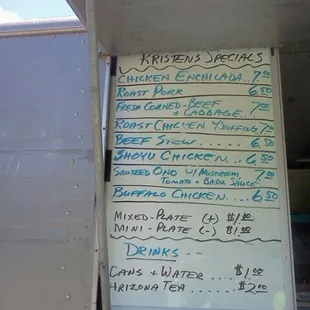 KRISTENS SPECIALS
CHICKEN ENCHILADA 7.00
ROAST PORK 6.50
FRESH CORNED-BEEF
+ CABBAGE 7.00
ROAST CHICKEN W/STUFFING 7.00
BEEF STEW..... 6.50
SHOYU CHICKEN... 6.50
SAUTEED ONO W/ MUSHROOM, 7.00
TOMATO + BASIL SAUCE
BUFFALO CHICKEN .. 6.50
MIXED-PLATE (+) $1.00
MINI-PLATE (-) $1.00
DRINKS - -
CANS + WATER .... $1.00
ARIZONA TEA ...... $2.00